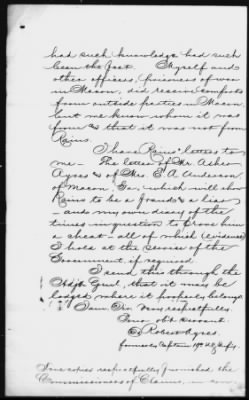 had such knowledge had such
been the fact. Myself and
other officers, prisoners of war
in Macon, did receive comforts
from outside parties in Macon
but we know whom it was
from & that it was not from
Rains.
I have Rains' letters to
me - The letter of Mr Asher
Ayres & of Mrs. E A Anderson,
of Macon, Ga, which will show
Rains to be a fraud & a liar
- and my own diary of the
times in question to prove him
a cheat - all of which (evidence)
I hold at the service of the
Government if required
I send this through the
Adjt Genl, that it may be
lodged where it properly belongs
I am, Sir, Very respectfully
Your obt Servant
Robert Ayres.
formerly Captain 19th U.S. Infy.
True copies respectfully furnished the
Commissioners of Claims,